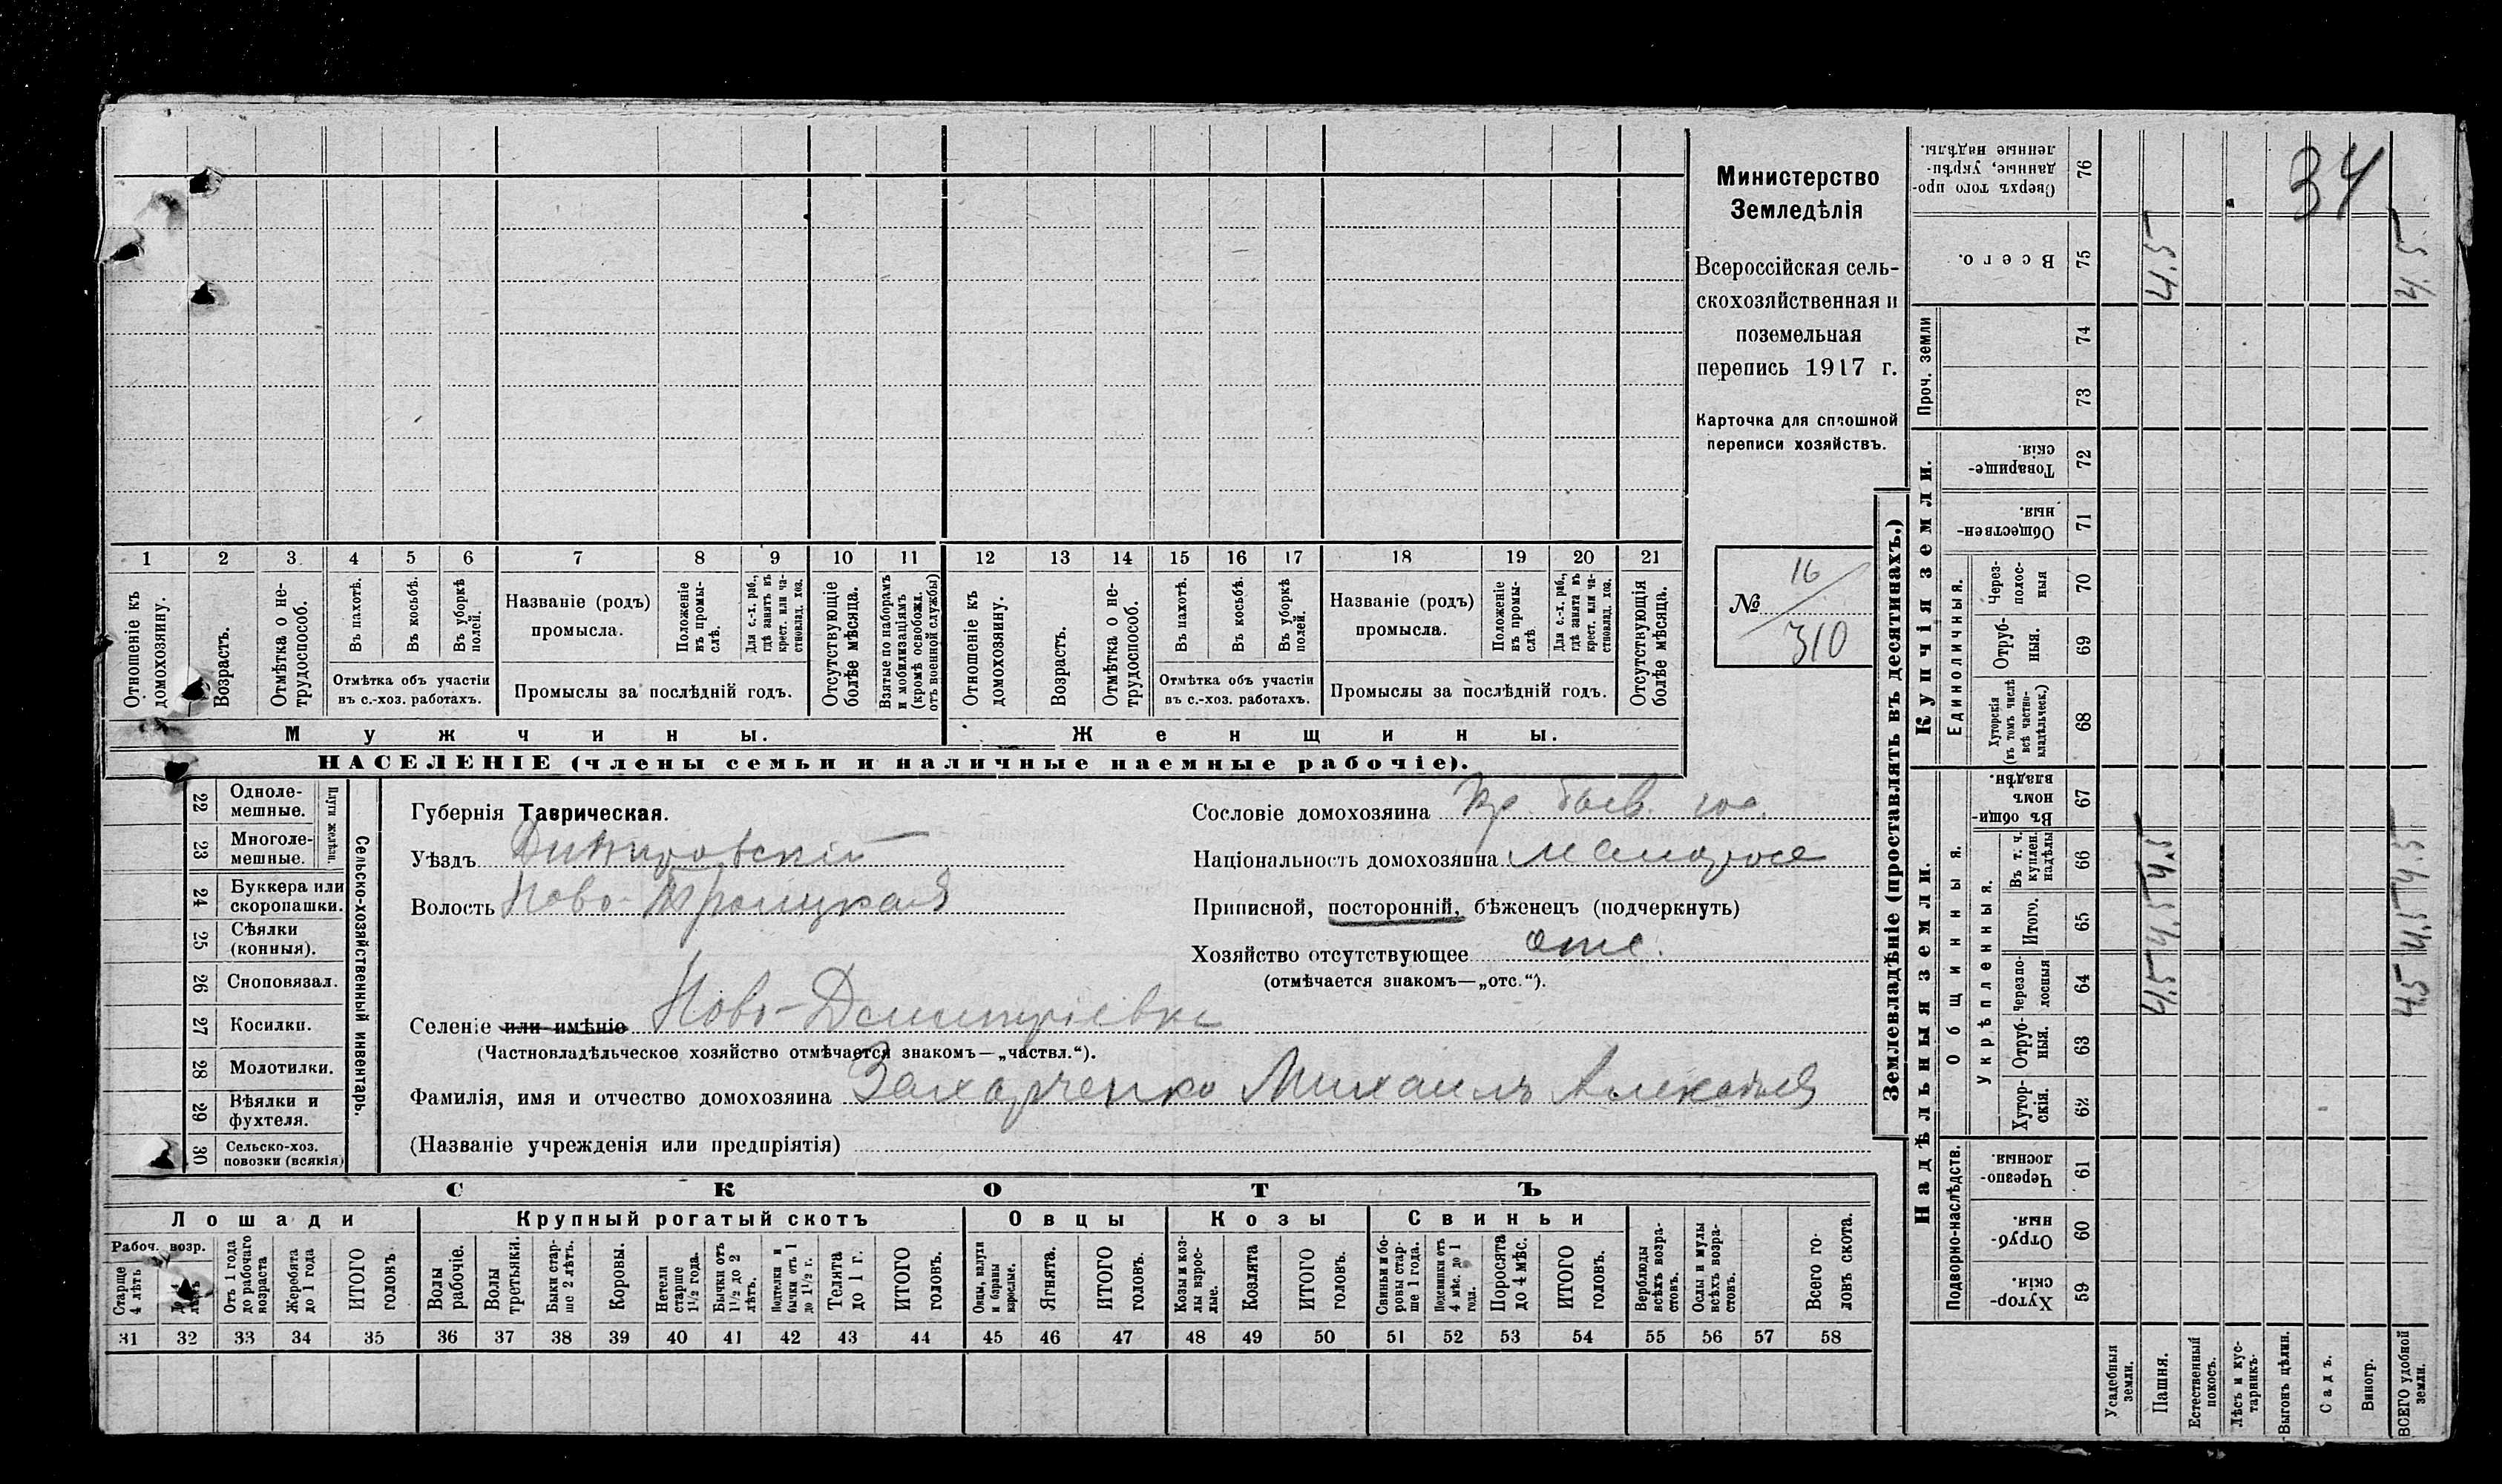 Министерство
Земледѣлія
Всероссійская сель-
скохозяйственная и
поземельная
перепись 1917 г.
Карточка для сплошной
переписи хозяйствъ.
№ 16
310
1 2 3 4 5 6 7 8 9 10 11 12 13 14 15 16 17 18 19 20 21
Отношеніе къ домохозяину.
Возрастъ.
Отмѣтка о не-
трудоспособ.
Въ пахотѣ.
Въ косьбѣ.
Въ уборкѣ полей.
Отмѣтка объ участіи
въ с.-хоз. работахъ.
Названіе (родъ)
промысла.
Положеніе въ промы-
слѣ.
Для с.-х. раб., гдѣ занятъ въ крест. или ча-
стновлад. хоз.
Промыслы за послѣдній годъ.
Отсутствующіе болѣе мѣсяца.
Взятые по наборамъ и мобилизаціямъ (кромѣ освобожд. отъ военной службы)
Отношеніе къ домохозяину.
Возрастъ.
Отмѣтка о не-
трудоспособ.
Въ пахотѣ.
Въ косьбѣ.
Въ уборкѣ полей.
Отмѣтка объ участіи
въ с.-хоз. работахъ.
Названіе (родъ)
промысла.
Положеніе въ промы-
слѣ
Для с.-х. раб., гдѣ занята въ крест. или ча-
стновлад. хоз.
Промыслы за послѣдній годъ.
Отсутствующія болѣе мѣсяца.
Мужчины. Женщины.
НАСЕЛЕНІЕ (члены семьи и наличные наемные рабочіе).
22 Одноле-
мешные.
23 Многоле-
мешные.
Плуги желѣзн.
24 Буккера или
скоропашки.
25 Сѣялки
(конныя).
26 Сноповязал.
27 Косилки.
28 Молотилки.
29 Вѣялки и
фухтеля.
30 Сельско-хоз.
повозки (всякія)
Сельско-хозяйственный инвентарь.
Губернія Таврическая.
Уѣздъ Днѣпровскій
Волость Ново-Троицкая
Сословіе домохозяина Кр. быв. гос.
Національность домохозяина малоросс
Приписной, посторонній, бѣженецъ (подчеркнуть)
Хозяйство отсутствующее отс.
(отмѣчается знакомъ—„отс.“).
Селеніе или имѣніе Ново-Дмитріевка
(Частновладѣльческое хозяйство отмѣчается знакомъ—„частвл.“).
Фамилія, имя и отчество домохозяина Захарченко Михаилъ
(Названіе учрежденія или предпріятія)
СКОТЪ
Лошади Крупный рогатый скотъ Овцы Козы Свиньи
Рабоч. возр.
Старше 4 лѣтъ
Отъ 1 года до рабочаго возраста
Жеребята до 1 года
ИТОГО головъ.
Волы рабочіе.
Волы третьяки.
Быки стар-
ше 2 лѣтъ.
Коровы.
Нетели старше 1½ года.
Бычки отъ 1½ до 2 лѣтъ.
Подтелки и бычки отъ 1 до 1½ г.
Телята до 1 г.
ИТОГО головъ.
Овцы, валухи и бараны взрослые.
Ягнята.
ИТОГО головъ.
Козы и коз-
лы взрос-
лые.
Козлята
ИТОГО головъ.
Свиньи и бо-
ровы стар-
ше 1 года.
Подсвинки отъ 4 мѣс. до 1 года.
Поросята до 4 мѣс.
ИТОГО головъ.
Верблюды всѣхъ возра-
стовъ.
Ослы и мулы всѣхъ возра-
стовъ.
Всего го-
ловъ скота.
31 32 33 34 35 36 37 38 39 40 41 42 43 44 45 46 47 48 49 50 51 52 53 54 55 56 57 58
Землевладѣніе (проставлять въ десятинахъ.)
Надѣльныя земли. Купчія земли.
Подворно-наслѣдств. Общинныя. Единоличныя. Проч. земли
Укрѣпленныя.
Хутор-
скія. 59
Отруб-
ныя. 60
Черезпо-
лосныя. 61
Хутор-
скія. 62
Отруб-
ныя. 63
Черезпо-
лосныя 64
Итого. 65
Въ т. ч. куплен. надѣлы 66
Въ общин-
номъ владѣн. 67
Хуторскія (въ томъ числѣ всѣ частно-
владѣльческ.) 68
Отруб-
ныя. 69
Через-
полос-
ныя 70
Обществен-
ныя. 71
Товарище-
скія. 72
73
74
Всего. 75
Сверхъ того про-
данные, укрѣп-
ленные надѣлы. 76
Усадебныя земли.
Пашня. 4.5 4.5 4.5 4.5
Естественный покосъ.
Лѣсъ и кус-
тарникъ.
Выгонъ цѣлин.
Садъ.
Виногр.
ВСЕГО удобной земли. 4.5 4.5 4.5 4.5
34